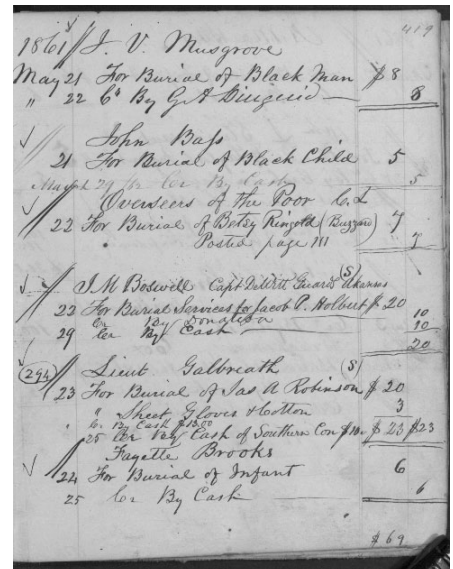 419
1861 J. V. Musgrove
May 21 For Burial of Black Man $8
" 22 Cr By G A 8
John Bass
21 For Burial of Black Child 5
29 Cr By Cash 5
Overseers of the Poor
22 For Burial of Betsy Ringold (Buzzard) 7
Posted page 111 7
J M Boswell Capt DeWitt Guards (S) Arkansas
22 For Burial Services for Jacob P. Holbert $20
Cr By Donation 10
29 Cr By Cash 10
20
294 Lieut Galbreath (S)
23 For Burial of Jas A Robinson $20
" Sheet Gloves & Cotton 3
Cr By Cash $13.00
25 Cr By Cash of Southern Con $10 $23 $23
Fayette Brooks
24 For Burial of Infant 6
25 Cr By Cash 6
$69